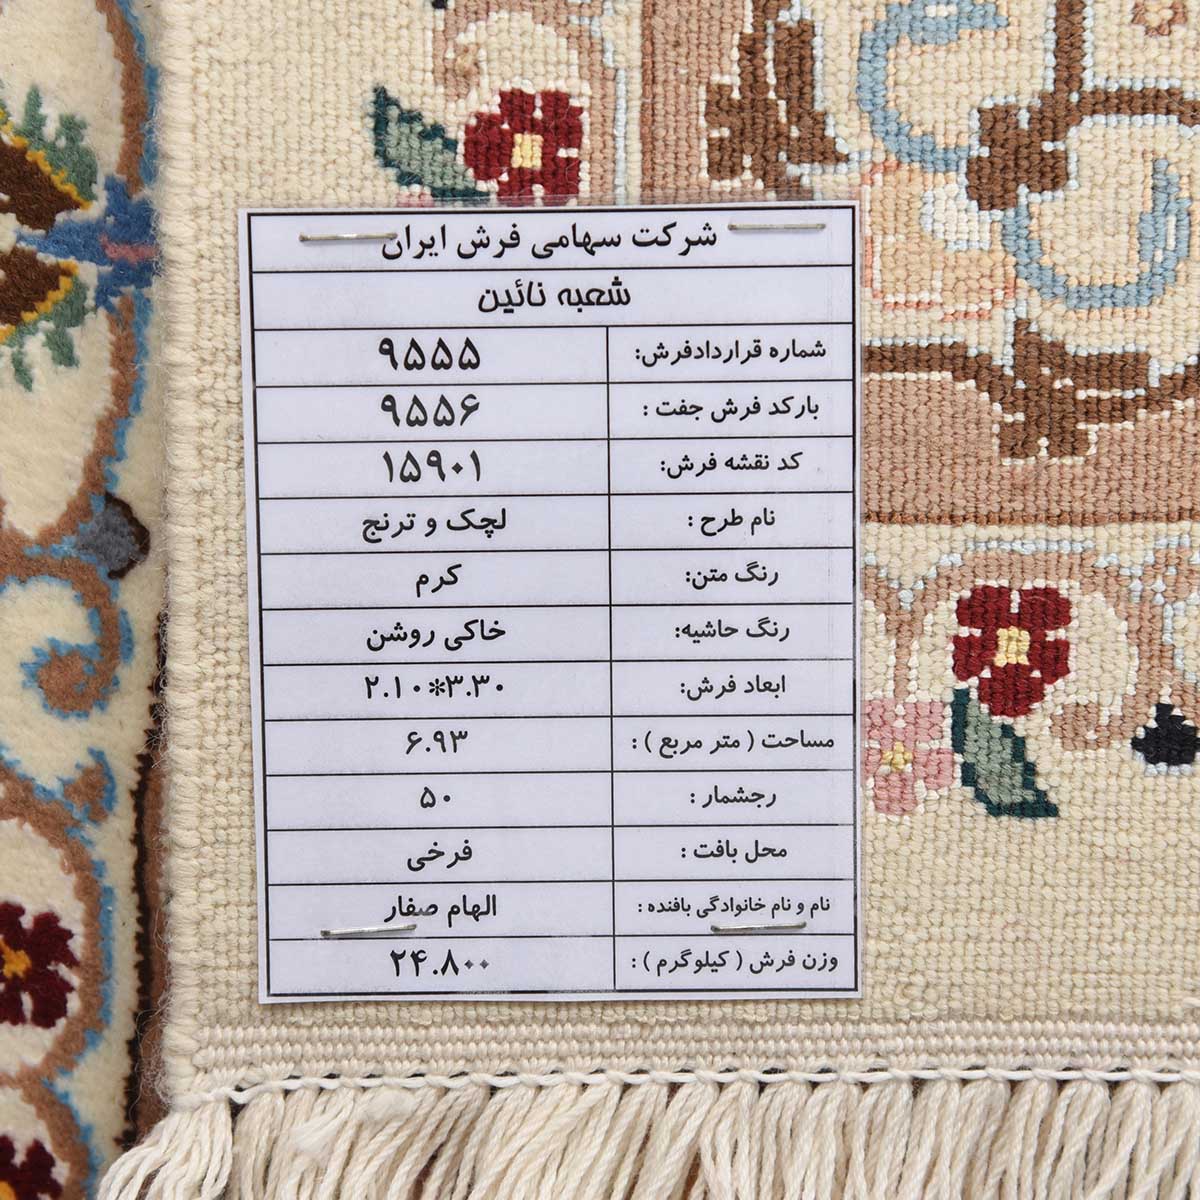 شرکت سهامی فرش ایران
شعبه نائین
شماره قراردادفرش: ۹۵۵۵
بارکد فرش جفت : ۹۵۵۶
کد نقشه فرش: ۱۵۹۰۱
نام طرح : لچک و ترنج
رنگ متن: کرم
رنگ حاشیه: خاکی روشن
ابعاد فرش: ۲.۱۰*۳.۳۰
مساحت ( متر مربع ) : ۶.۹۳
رجشمار : ۵۰
محل بافت : فرخی
نام و نام خانوادگی بافنده : الهام صفار
وزن فرش ( کیلوگرم ) : ۲۴.۸۰۰